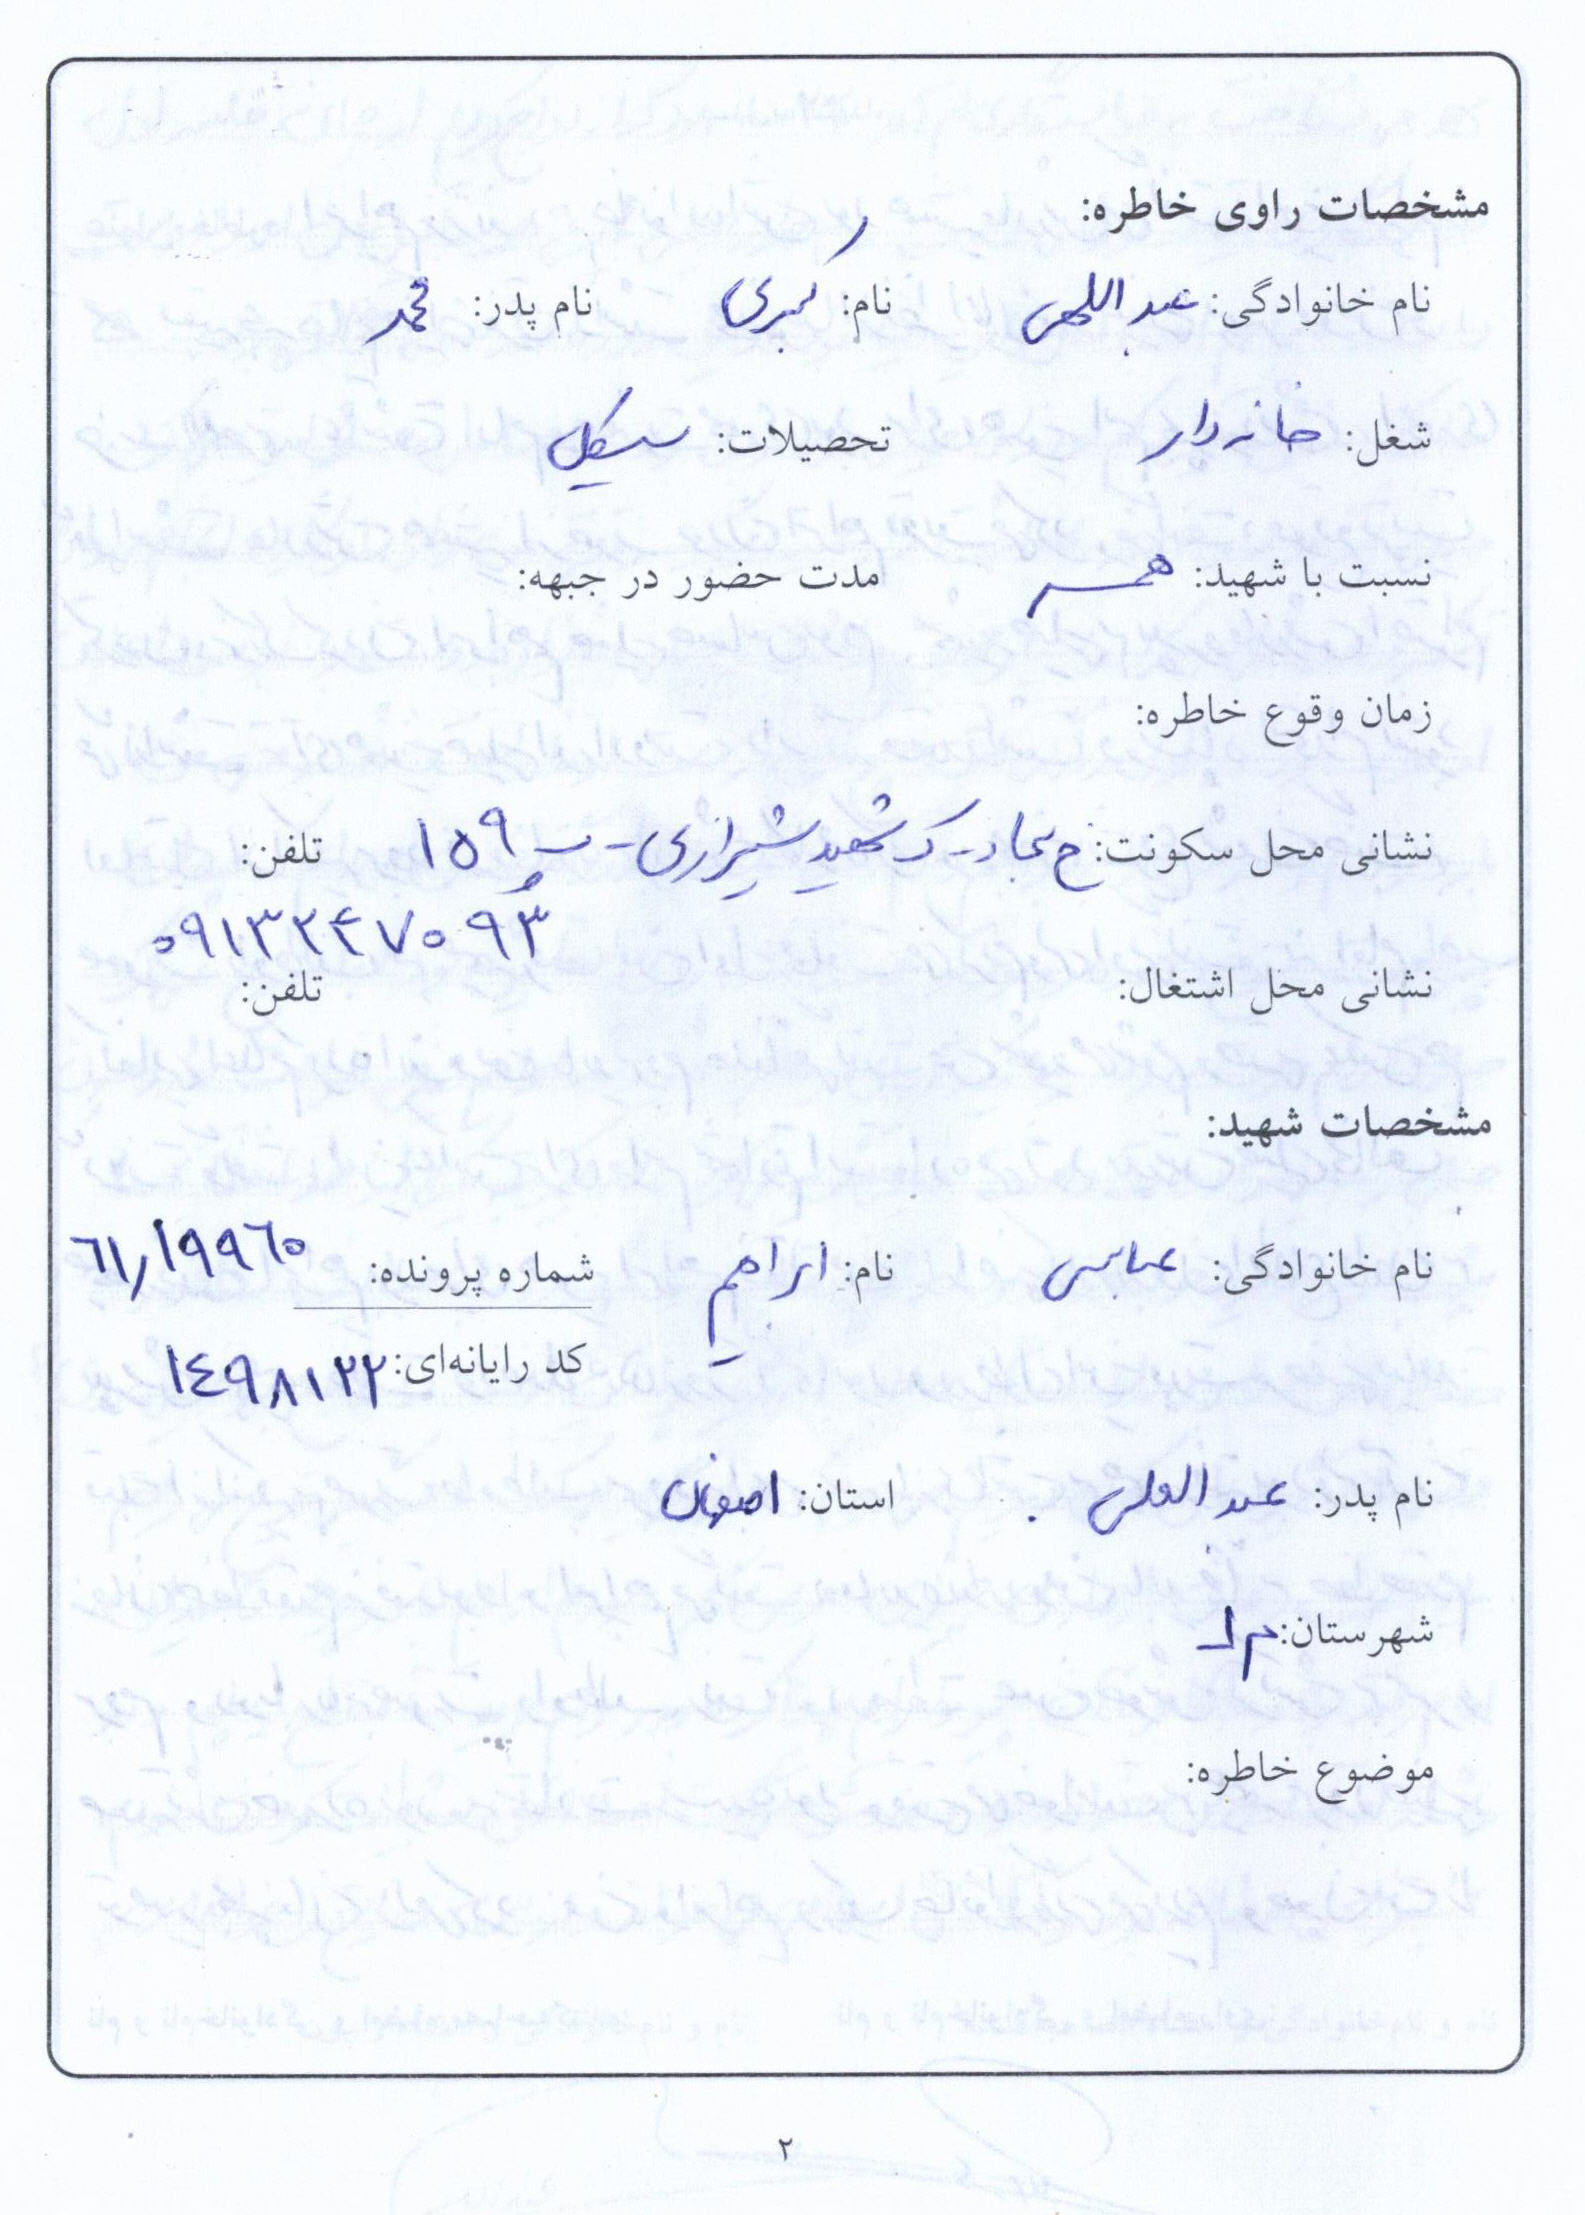 مشخصات راوی خاطره:
نام خانوادگی: عبداللهی نام: کبری نام پدر: محمد
شغل: خانه دار تحصیلات: سیکل
نسبت با شهید: همسر مدت حضور در جبهه:
زمان وقوع خاطره:
نشانی محل سکونت: خ سجاد - ک شهید شیرازی - پ ۱۵۹ تلفن:
۰۹۱۳۲۴۷۰۹۳
نشانی محل اشتغال: تلفن:
مشخصات شهید:
نام خانوادگی: عباسی نام: ابراهیم شماره پرونده: ۶۱/۱۹۹۶۰
کد رایانه‌ای: ۱۴۹۸۱۲۲
نام پدر: عبدالعلی استان: اصفهان
شهرستان:
موضوع خاطره:
۲